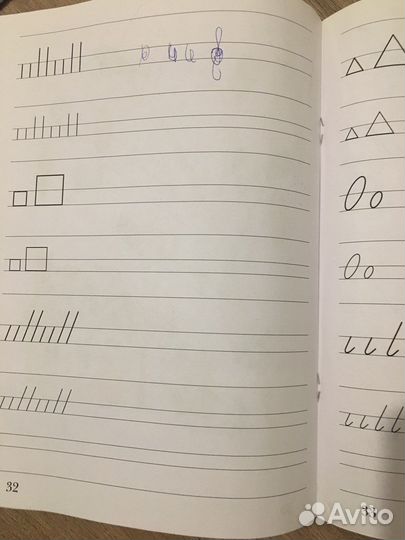 32
Oo
Oo
33
Avito